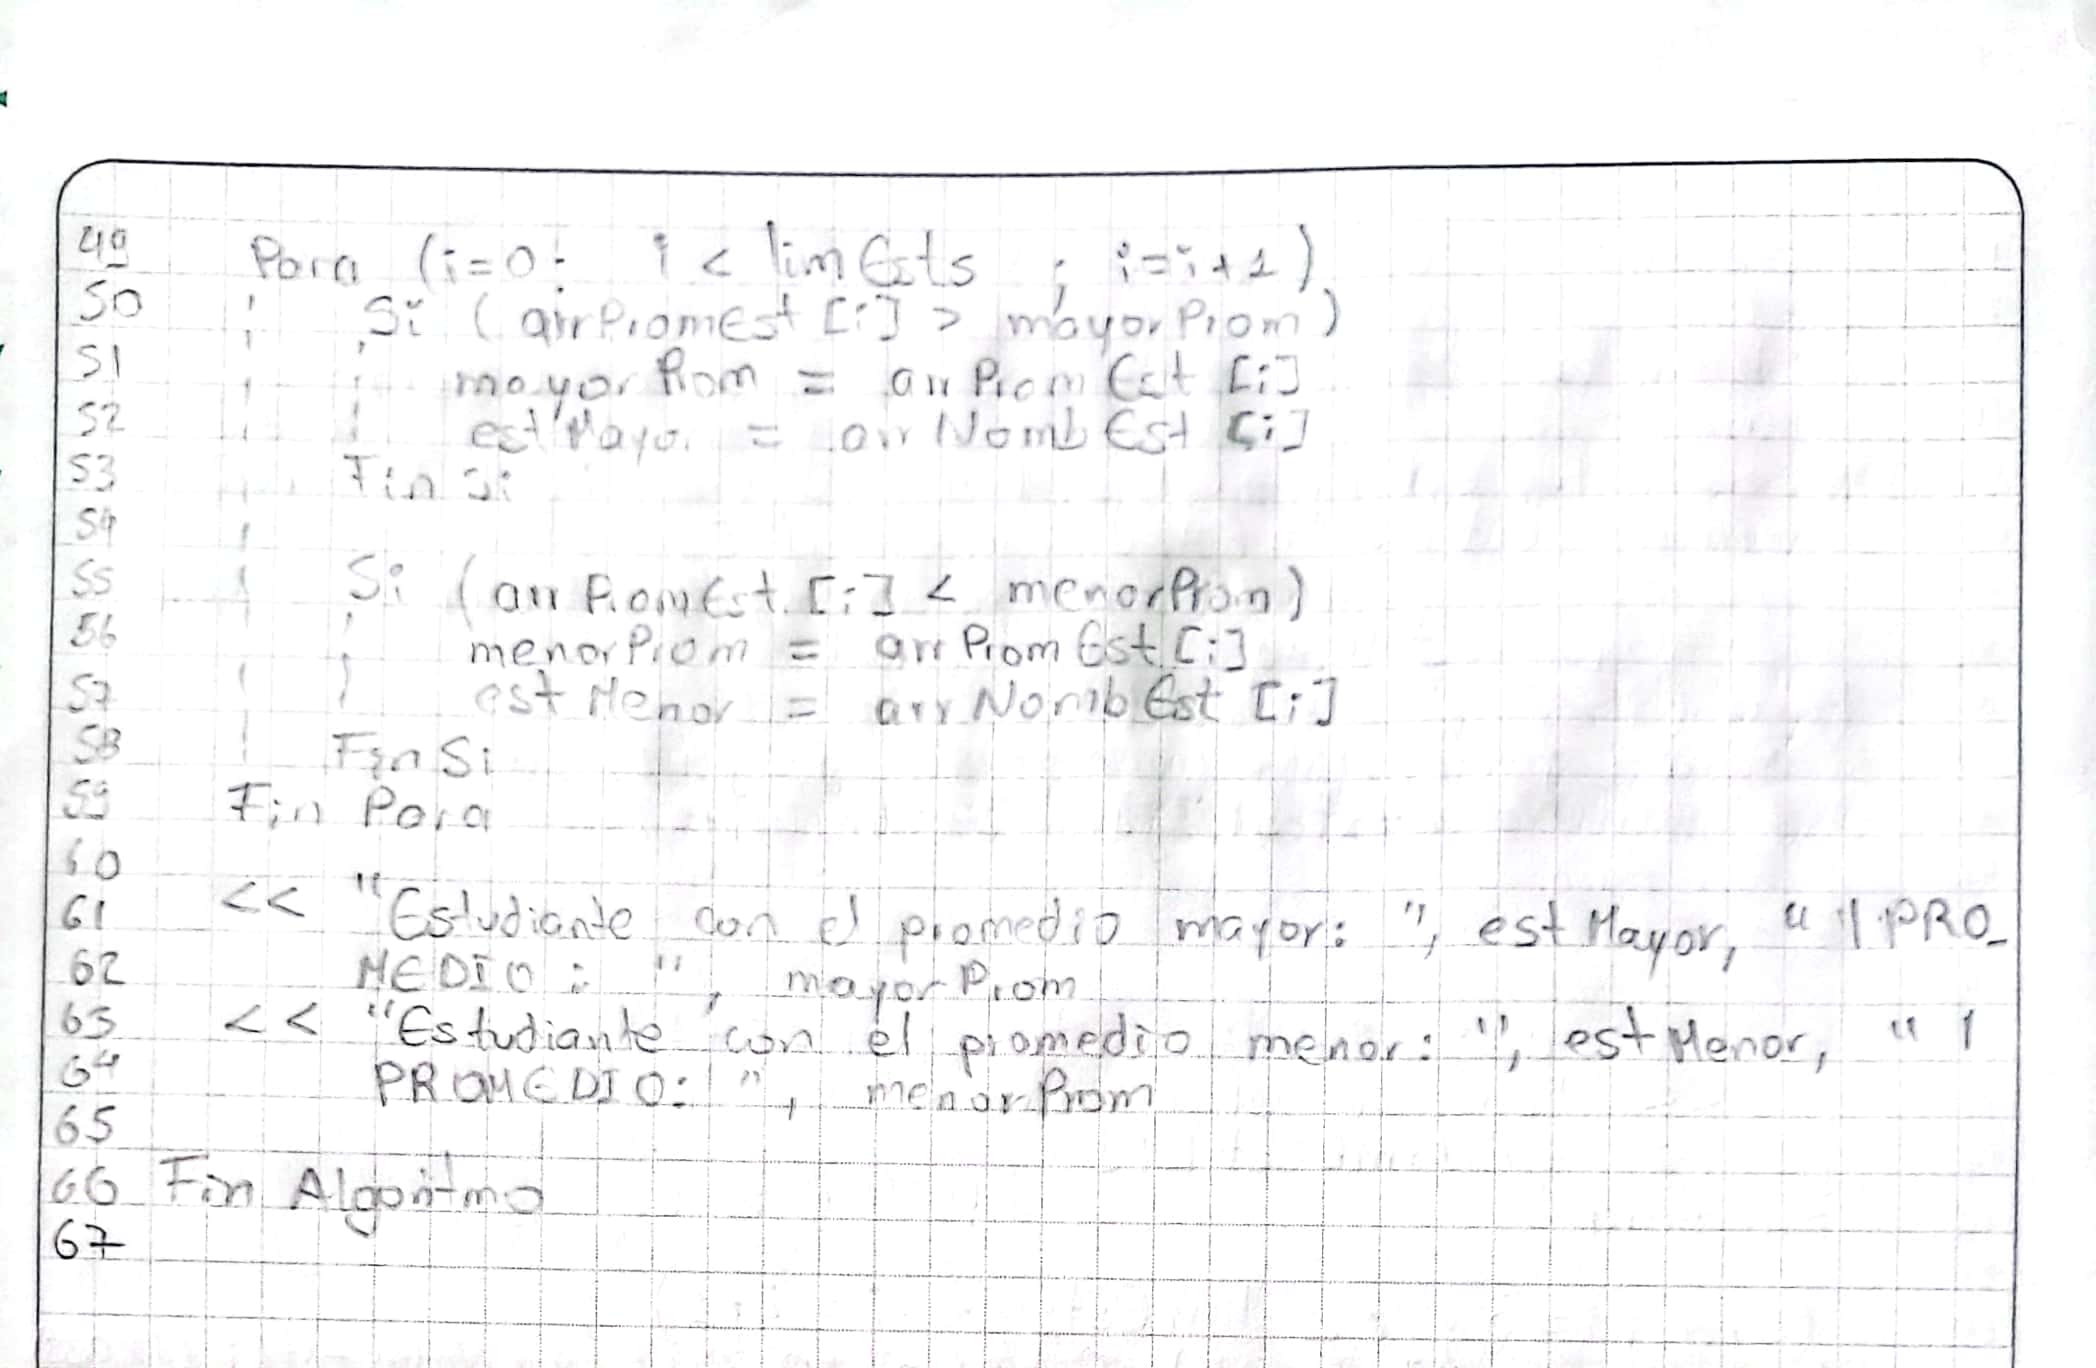 49 Para (i=0; i < limEsts ; i=i+1)
50 Si (arrPromEst [i] > mayorProm)
51 mayorProm = arrPromEst [i]
52 estMayor = arrNombEst [i]
53 Fin Si
54
55 Si (arrPromEst [i] < menorProm)
56 menorProm = arrPromEst [i]
57 estMenor = arrNombEst [i]
58 Fin Si
59 Fin Para
60
61 << "Estudiante con el promedio mayor: ", estMayor, " | PRO_
62 MEDIO: ", mayorProm
63 << "Estudiante con el promedio menor: ", estMenor, " |
64 PROMEDIO: ", menorProm
65
66 Fin Algoritmo
67